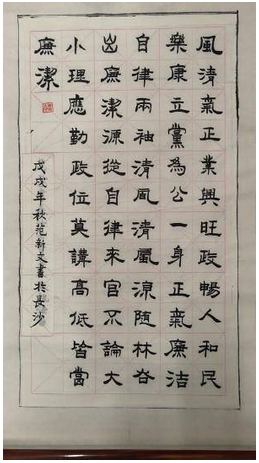 風清氣正業興旺政暢人和民
樂康立黨為公一身正氣廉洁
自律兩袖清風清風源随林谷
出廉潔源從自律來官不論大
小理應勤政位莫諱高低皆當
廉潔
戊戌年秋范新文書於長沙